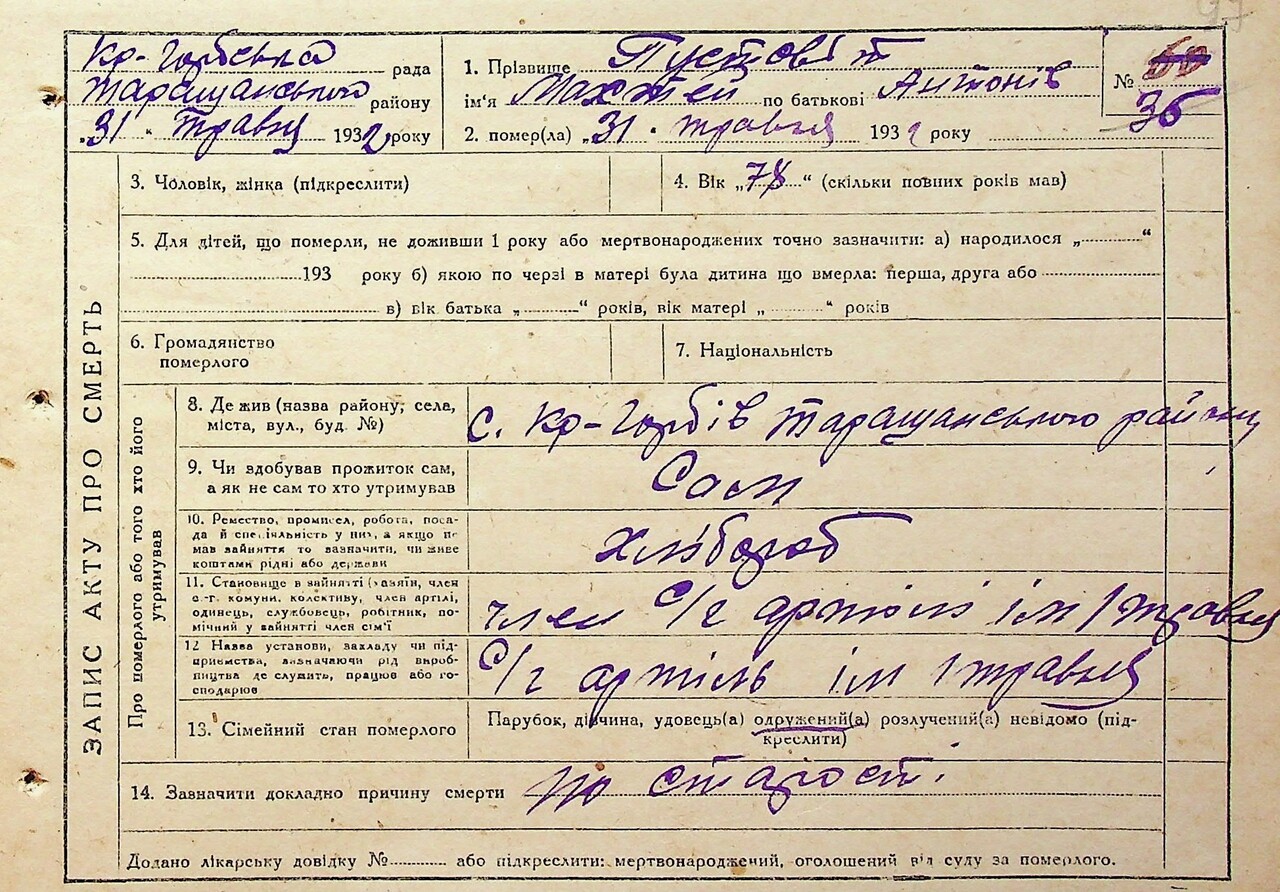 97
Кр-Горбська рада
Таращанського району
„31" травня 1932 року
1. Прізвище Пустовіт
ім'я Махтей по батькові Антонів
2. помер(ла) „31" травня 1932 року
№ 60
36
ЗАПИС АКТУ ПРО СМЕРТЬ
3. Чоловік, жінка (підкреслити)
4. Вік „78" (скільки повних років мав)
5. Для дітей, що померли, не доживши 1 року або мертвонароджених точно зазначити: а) народилося „ "
193 року б) якою по черзі в матері була дитина що вмерла: перша, друга або
в) вік батька „ " років, вік матері „ " років
6. Громадянство
померлого
7. Національність
Про померлого або того хто його
утримував
8. Де жив (назва району, села,
міста, вул., буд. №)
с. Кр-Горбів Таращанського району
9. Чи здобував прожиток сам,
а як не сам то хто утримував
Сам
10. Ремество, промисел, робота, поса-
да й спеціяльність у них, а якщо не
мав зайняття то зазначити, чи живе
коштами рідні або держави
хлібороб
11. Становище в зайнятті (хазяїн, член
с.-г. комуни, колективу, член артілі,
одинець, службовець, робітник, по-
мічний у зайнятті член сім'ї
член с/г артілі ім 1 травня
12 Назва установи, закладу чи під-
приємства, зазначаючи рід вироб-
ництва де служить, працює або го-
сподарює
С/г артіль ім 1 травня
13. Сімейний стан померлого
Парубок, дівчина, удовець(а) одружений(а) розлучений(а) невідомо (під-
креслити)
14. Зазначити докладно причину смерти по старості
Додано лікарську довідку № або підкреслити: мертвонароджений, оголошений від суду за померлого.